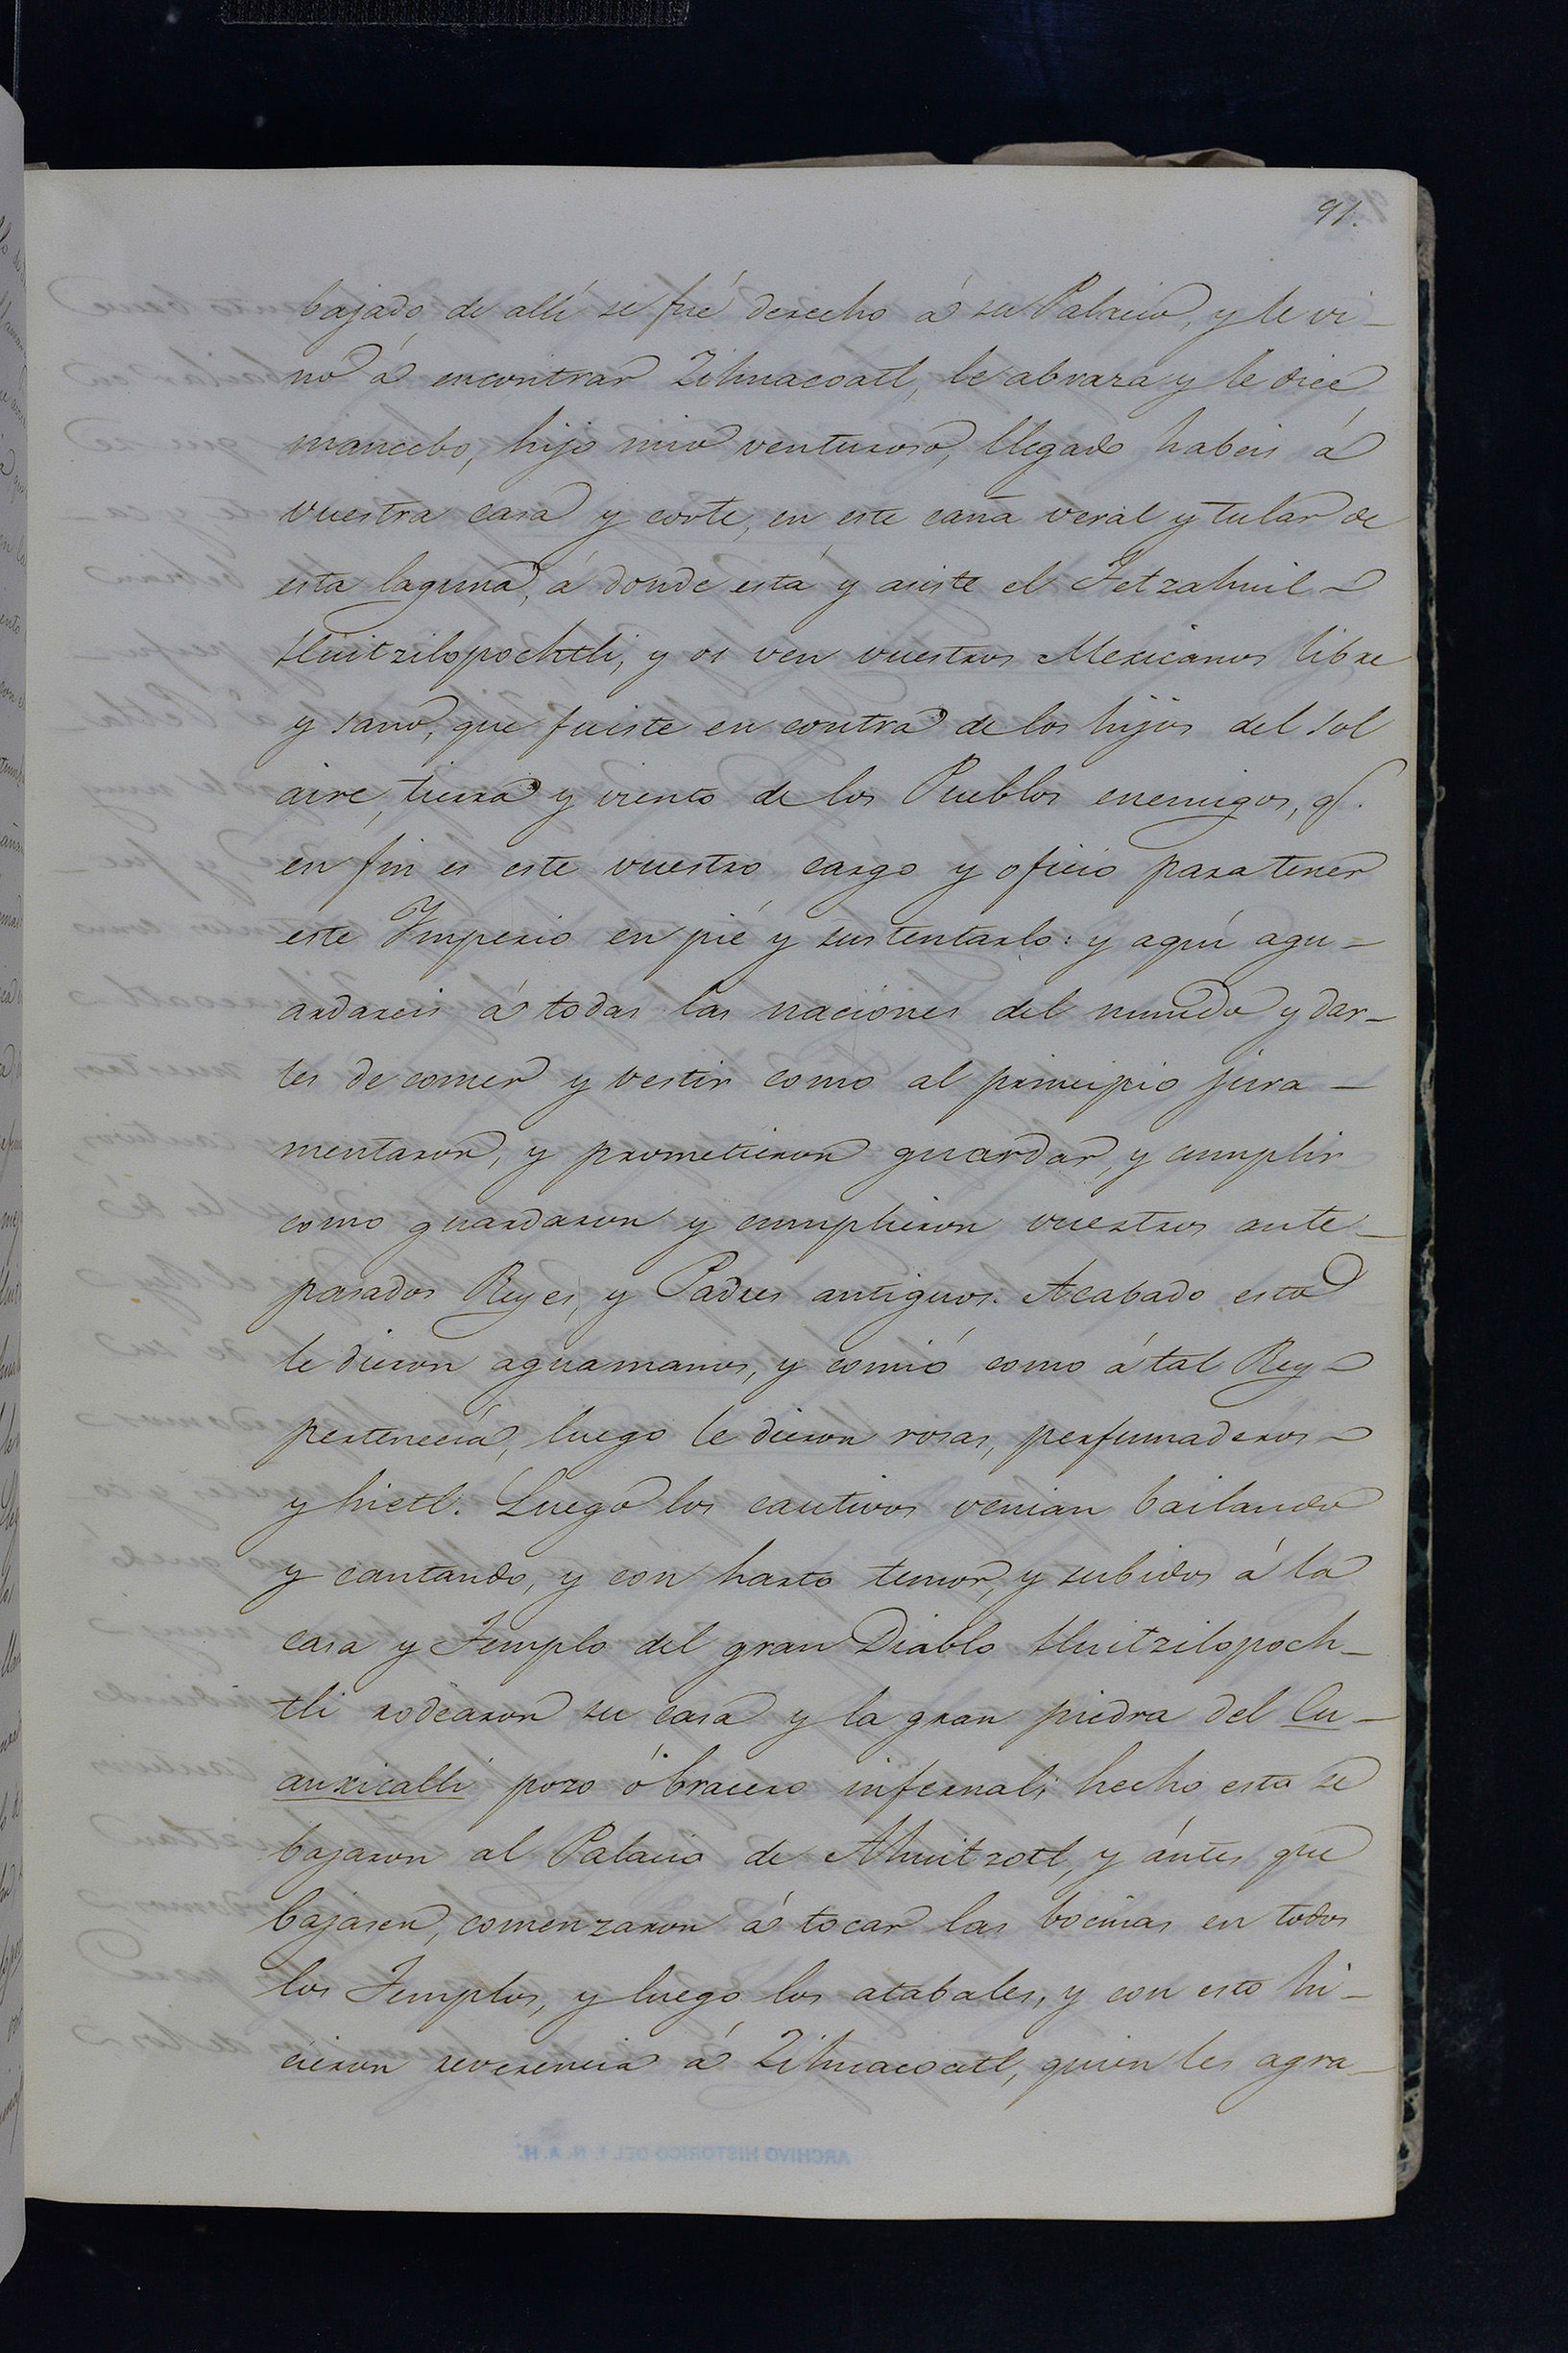 91.
bajado de allí se fué derecho á su Palacio, y le vi-
no á encontrar Zihuacoatl, le abraza y le dice
mancebo, hijo mio venturoso, llegado habeis á
vuestra casa y corte, en este caña veral y tular de
esta laguna, á donde está y asiste el Tetzahuil-
Huitzilopochtli, y os ven vuestros Mexicanos libre
y sano, que fuiste en contra de los hijos del sol
aire, tierra y viento de los Pueblos enemigos, q.
en fin es este vuestro cargo y oficio para tener
este Ymperio en pié y sustentarlo: y aquí agu-
ardareis á todas las naciones del mundo y dar-
les de comer y vestir como al principio jura-
mentaron, y prometieron guardar, y cumplir
como guardaron y cumplieron vuestros ante-
pasados Reyes, y Padres antiguos. Acabado esto
le dieron aguamanos, y comió como á tal Rey-
pertenecía, luego le dieron rosas, perfumaderos-
y hietl. Luego los cautivos venian bailando
y cantando, y con harto temor, y subidos á la
casa y Templo del gran Diablo Huitzilopoch-
tli rodearon su casa y la gran piedra del Cu-
auxicalli pozo ó bracero infernal; hecho esto se
bajaron al Palacio de Ahuitzotl, y ántes que
bajasen, comenzaron á tocar las bocinas en todos
los Templos, y luego los atabales, y con esto hi-
cieron reverencia á Zihuacoatl, quien les agra-
ARCHIVO HISTORICO DEL I. N. A. H.